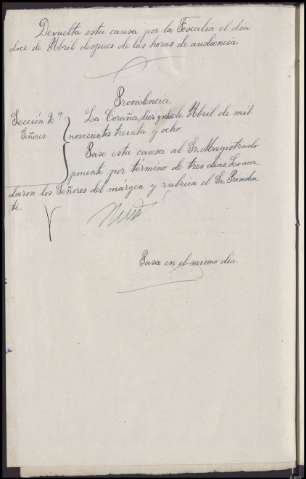 Devuelta esta causa por la Fiscalia el dia
doce de Abril despues de las horas de audiencia
Providencia
Sección 2ª
Señores
La Coruña, diez y seis de Abril de mil
novecientos treinta y ocho.
Pase esta causa al Sr. Magistrado
ponente por término de tres dias. Lo acor
daron los Señores del margen y rubrica el Sr. Presiden
te.
Pasa en el mismo dia.